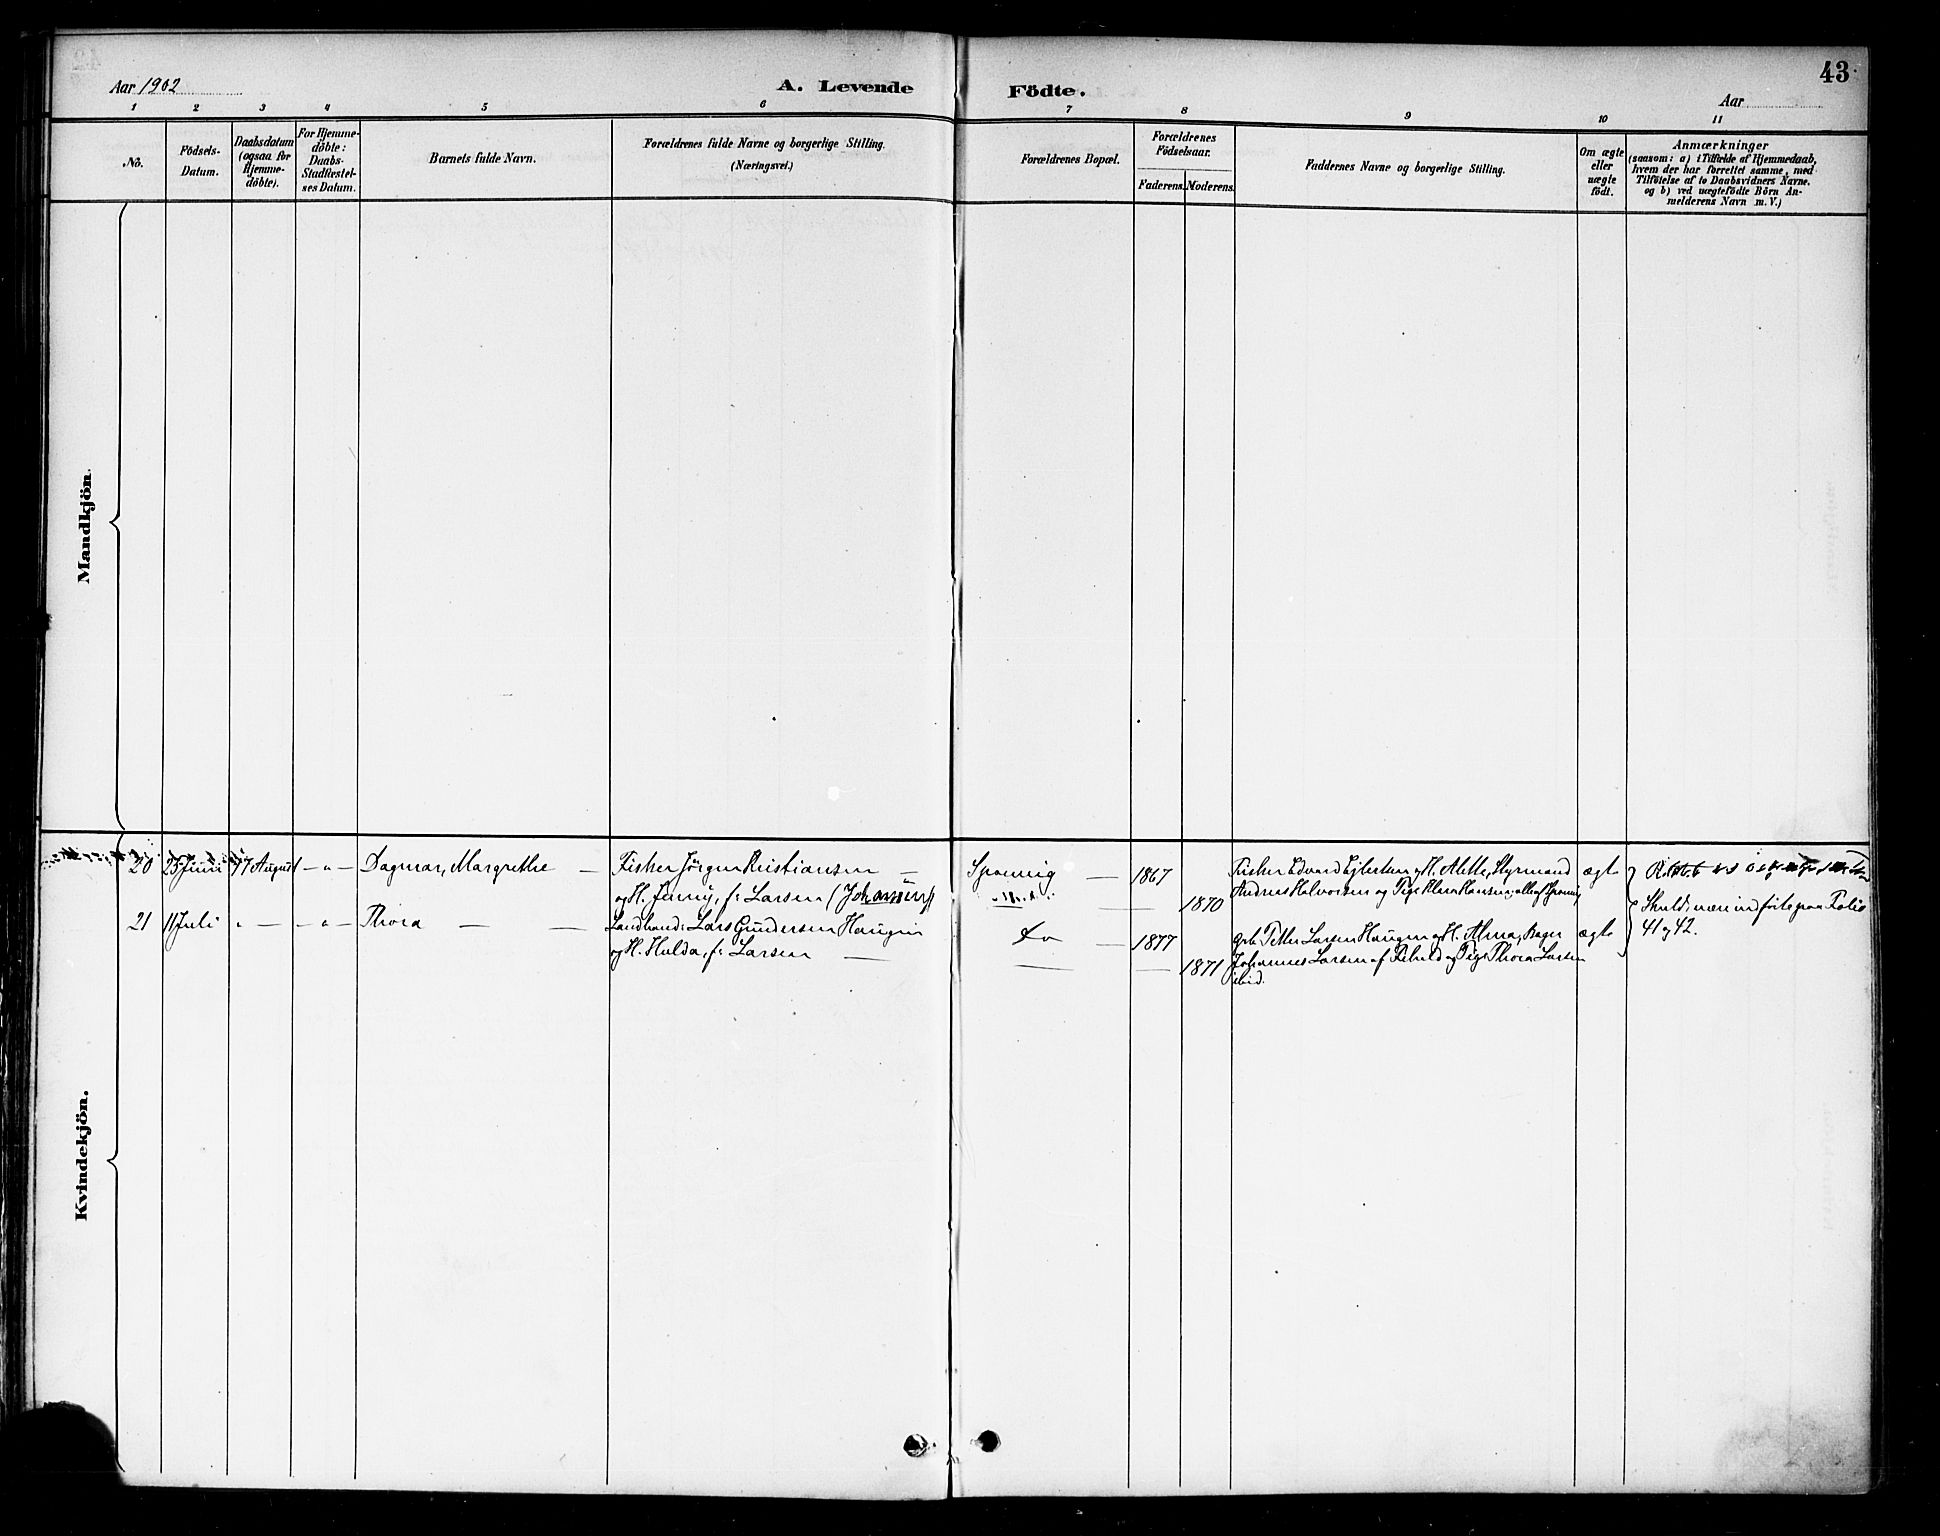 43
Aar 1902
A. Levende Födte.
Aar
1 2 3 4 5 6 7 8 9 10 11
No.
Födsels-
Datum.
Daabsdatum
(ogsaa for
Hjemme-
döbte).
For Hjemme-
döbte:
Daabs-
Stadfestel-
ses Datum.
Barnets fulde Navn.
Forældrenes fulde Navne og borgerlige Stilling.
(Næringsvei.)
Forældrenes Bopæl.
Forældrenes
Födselsaar.
Faderens. Moderens.
Faddernes Navne og borgerlige Stilling.
Om ægte
eller
uægte
födt.
Anmærkninger
(saasom: a) i Tilfælde af Hjemmedaab,
hvem der har forrettet samme, med
Tilföielse af to Daabsvidners Navne,
og b) ved uægtefödte Börn An-
melderens Navn m. V.)
Mandkjön.
Kvindekjön.
20 25 Juni 17 August — " — Dagmar, Margrethe — Fisker Jörgen Kristiansen —
og H. Jenny, f: Larsen (Johansen)
1867
1870
Fisker Edvard Ejlertsen og H. Alette, Styrmand
Andreas Halvorsen og Pige Klara Hansen; alle af
ægte
21 11 Juli " — — " — Thora — —
Landhand: Lars Gundersen Haugen
og H. Hulda, f: Larsen —
Do — 1877
1871
Petter Larsen Haugen og H. Alma,
Johannes Larsen af og Pige Thora Larsen
ibid.
ægte
Skulde være indförte paa Folio
41 og 42.